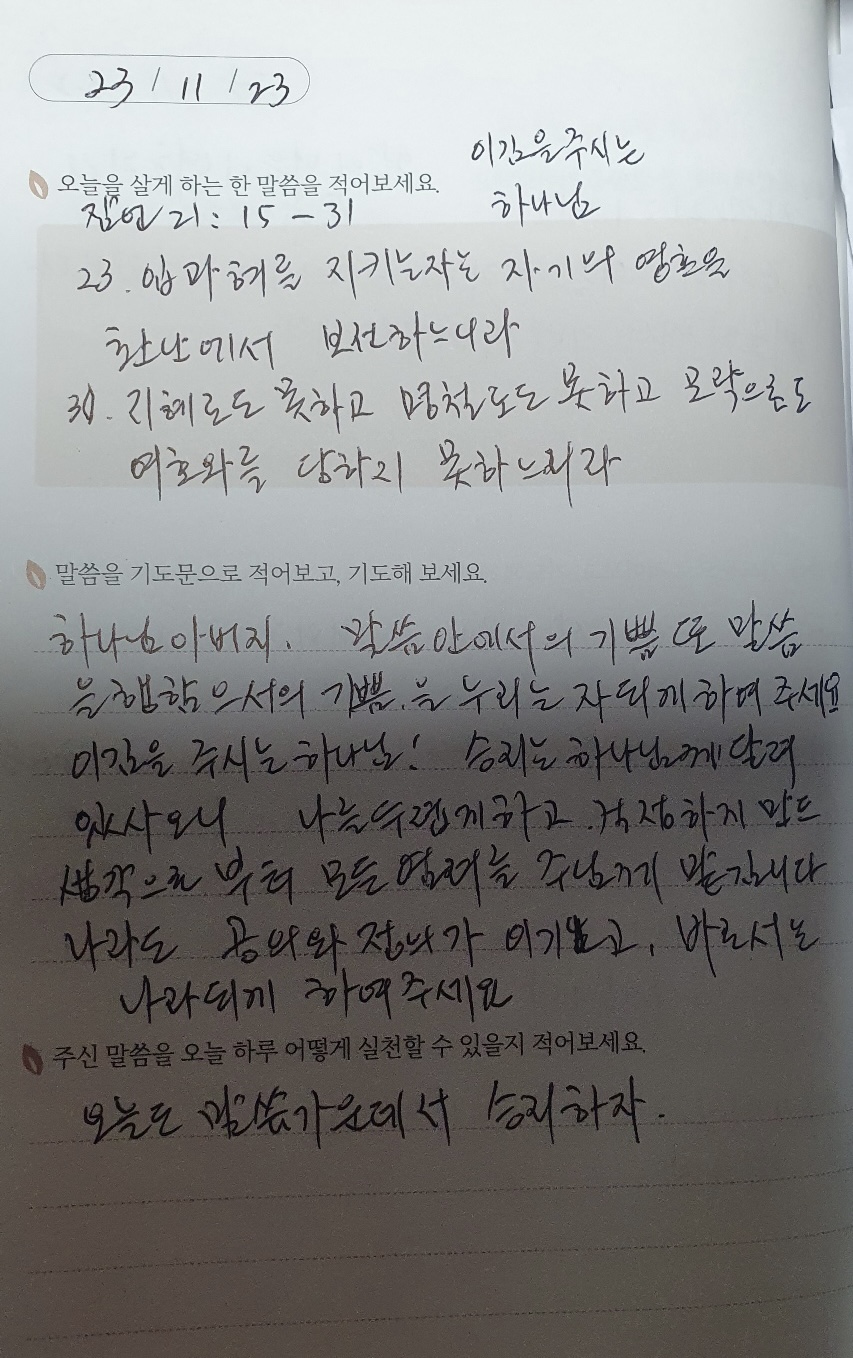 23 / 11 / 23
이김을 주시는
오늘을 살게 하는 한 말씀을 적어보세요.
하나님
잠언 21 : 15 - 31
23. 입과 혀를 지키는 자는 자기의 영혼을
환난에서 보전하느니라
30. 지혜로도 못하고 명철로도 못하고 모략으로도
여호와를 당하지 못하느니라
말씀을 기도문으로 적어보고, 기도해 보세요.
하나님 아버지. 말씀 안에서의 기쁨 또 말씀
을 행함으서의 기쁨.을 누리는 자 되게 하여 주세요
이김을 주시는 하나님! 승리는 하나님께 달려
있사오니 나를 두렵게 하고 걱정하지 만드
생각으로 부터 모든 염려를 주님께 맡깁니다
나라도 공의와 정의가 이기고, 바로 서는
나라 되게 하여 주세요
주신 말씀을 오늘 하루 어떻게 실천할 수 있을지 적어보세요.
오늘도 말씀 가운데서 승리하자.